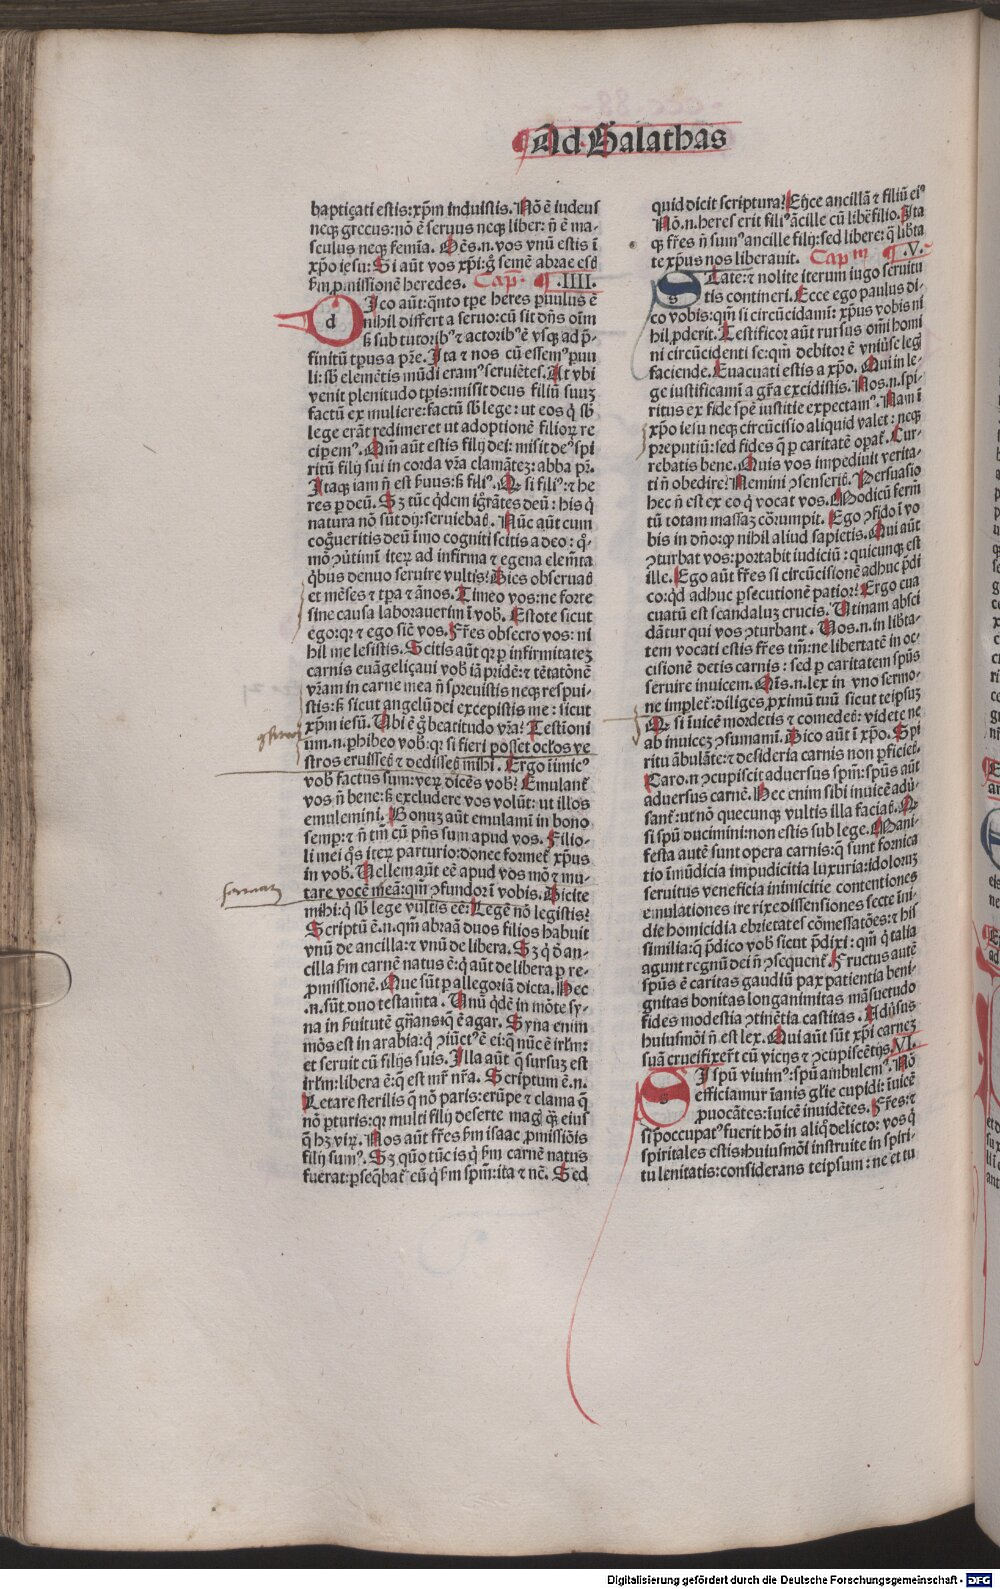 Ad Galathas
baptiçati estis: xp̄m induistis. Nō ē iudeus
neqꝫ grecus: nō ē seruus neqꝫ liber: n̄ ē ma-
sculus neqꝫ femīa. Oēs .n. vos vnū estis ī
xp̄o iesu: Si aūt vos xp̄i: g̊ semē abrae estꝭ
ẜm ꝓmissionē heredes. Cap̄. .IIII.
DIco aūt: q̄nto tꝑe heres ꝑuulus ē
nihil differt a seruo: cū sit dn̄s oīm
ß sub tutoribꝰ ⁊ actoribꝰ ē vsqꝫ ad p̄-
finitū tꝑus a pr̄e. Ita ⁊ nos cū essemꝰ ꝑuu
li: sb̄ elemētis mūdi eramꝰ seruiētes. At vbi
venit plenitudo tꝑis: misit deus filiū suuꝫ
factū ex muliere: factū sb̄ lege: ut eos q̇ sb̄
lege erāt redimeret ut adoptionē filioꝝ re
ciperemꝰ. Qm̄ aūt estis filij dei: misit deꝰ spi
ritū filij sui in corda vr̄a clamātez: abba pr̄.
Itaqꝫ iam n̄ est ẜuus: ß filiꝰ. Qꝫ si filiꝰ: ⁊ he
res ꝑ deū. Sꝫ tūc q̇dem ig̃rātes deū: his q̇
natura nō sūt dij: seruiebatꝭ. Nūc aūt cum
cog̃ueritis deū īmo cogniti scitis a deo: q̊-
mō ꝯuertimī iteꝝ ad infirma ⁊ egena elem̄ta
q̇bus denuo seruire vultis? Dies obseruatꝭ
et mēses ⁊ tꝑa ⁊ ānos. Timeo vos: ne forte
sine causa laborauerim ī vob. Estote sicut
ego: qꝛ ⁊ ego sic̄ vos. Fr̄es obsecro vos: ni
hil me lesistis. Scitis aūt qꝛ ꝑ infirmitateꝫ
carnis euāgeliçaui vob iā pridē: ⁊ tētatōnē
vr̄am in carne mea n̄ spreuistis neqꝫ respui-
stis: ß sicut angelū dei excepistis me: sicut
xp̄m iesū. Vbi ē g̊ beatitudo vr̄a? Testīoni
um .n. ꝑhibeo vob: qꝛ si fieri posset ocl̄os ve
stros eruissetꝭ ⁊ dedissetꝭ mihi. Ergo īimicꝰ
vob factus sum: veꝝ dicēs vob? Emulant̄
vos n̄ bene: ß excludere vos volūt: ut illos
emulemini. Bonuꝫ aūt emulamī in bono
semꝑ: ⁊ n̄ tm̄ cū p̄ns sum apud vos. Filio-
li mei q̊s iteꝝ parturio: donec formet̄ xp̄us
in vob. Vellem aūt eē apud vos mō ⁊ mu-
tare vocē meā: qm̄ ꝯfundor ī vobis. Dicite
mihi: q̇ sb̄ lege vultis eē: Legē nō legistis?
Scriptū ē .n. qm̄ abraā duos filios habuit
vnū de ancilla: ⁊ vnū de libera. Sꝫ q̇ d̄ an-
cilla ẜm carnē natus ē: q̇ aūt de libera ꝑ re-
ꝓmissionē. Que sūt ꝑ allegoriā dicta. Hec
.n. sūt duo testam̄ta. Vnū q̇dē in mōte sy-
na in ẜuitutē gn̄ans: q̄ ē agar. Syna enim
mōs est in arabia: q̇ ꝯiūctꝰ ē ei: q̄ nūc ē irl̄m:
et seruit cū filijs suis. Illa aūt q̄ sursuꝫ est
irl̄m: libera ē: q̄ est mr̄ nr̄a. Scriptum ē .n.
Letare sterilis q̄ nō paris: erūpe ⁊ clama q̄
nō ꝑturis: qꝛ multi filij deserte mag̊ qꝫ eius
q̄ hꝫ viꝝ. Nos aūt fr̄es ẜm isaac ꝓmissiōis
filij sumꝰ. Sꝫ quō tūc is q̇ ẜm carnē natus
fuerat: ꝑseqbat̄ eū q̇ ẜm spm̄: ita ⁊ nc̄. Sed
quid dicit scriptura? Eijce ancillā ⁊ filiū eiꝰ
Nō .n. heres erit filiꝰ ācille cū libē filio. Ita
qꝫ fr̄es n̄ sumꝰ ancille filij: sed libere: q̄ libta
te xp̄us nos liberauit. Cap̄m .V.
STate: ⁊ nolite iterum iugo seruitu
tis contineri. Ecce ego paulus di-
co vobis: qm̄ si circūcidamī: xp̄us vobis ni
hil ꝓderit. Testificor aūt rursus om̄i homi
ni circūcidenti se: qm̄ debitor ē vniūse legꝭ
faciende. Euacuati estis a xp̄o. Qui in le-
ge iustificamī a gr̄a excidistis. Nos .n. spi-
ritus ex fide spē iustitie expectamꝰ. Nam ī
xp̄o iesu neqꝫ circūcisio aliquid valet: neqꝫ
preputiū: sed fides q̄ ꝑ caritatē opat̄. Cur-
rebatis bene. Quis vos impediuit verita-
ti n̄ obedire? Nemini ꝯsenseritꝭ. Persuasio
hec n̄ est ex eo q̇ vocat vos. Modicū ferm̄
tū totam massaꝫ cōrumpit. Ego ꝯfido ī vo
bis in dn̄o: qꝫ nihil aliud sapietis. Qui aūt
ꝯturbat vos: portabit iudiciū: quicunqꝫ est
ille. Ego aūt fr̄es si circūcisionē adhuc p̄di
co: qd̄ adhuc ꝑsecutionē patior? Ergo eua
cuatū est scandaluꝫ crucis. Vtinam absci
dātur qui vos ꝯturbant. Vos .n. in libta-
tem vocati estis fr̄es tm̄: ne libertatē in oc-
cisionē detis carnis: sed ꝑ caritatem sp̄us
seruire inuicem. Om̄is .n. lex in vno sermo-
ne implet̄: diliges ꝓximū tuū sicut teipsuꝫ
Qꝫ si īuicē mordetis ⁊ comedetꝭ: videte ne
ab inuiceꝫ ꝯsumamī. Dico aūt ī xp̄o. Spi
ritu ābulate: ⁊ desideria carnis non ꝑficietꝭ.
Caro .n. ꝯcupiscit aduersus spm̄: sp̄us aūt
aduersus carnē. Hec enim sibi inuicē adū-
sant̄: ut nō quecunqꝫ vultis illa faciatꝭ. Qꝫ
si sp̄u ducimini: non estis sub lege. Mani-
festa autē sunt opera carnis: q̄ sunt fornica
tio īmūdicia impudicitia luxuria: idoloꝝ
seruitus veneficia inimicitie contentiones
emulationes ire rixe dissensiones secte īui-
die homicidia ebrietates cōmessatōes: ⁊ his
similia: q̄ p̄dico vob sicut p̄dixi: qm̄ q̇ talia
agunt regnū dei n̄ ꝯsequent̄. Fructus autē
sp̄us ē caritas gaudiū pax patientia beni-
gnitas bonitas longanimitas māsuetudo
fides modestia ꝯtinētia castitas. Aduūsus
huiusmōi n̄ est lex. Qui aūt sūt xp̄i carneꝫ
suā crucifixert̄ cū vicijs ⁊ ꝯcupiscētijs. .VI.
SI spū viuimꝰ: spū ambulemꝰ. Nō
efficiamur īanis glīe cupidi: īuicē
ꝓuocātes: īuicē inuidētes. Fr̄es: ⁊
si p̄occupatꝰ fuerit hō in aliq̊ delicto: vos q̇
spiritales estis: huiusmōi instruite in spiri-
tu lenitatis: considerans teipsum: ne et tu
Digitalisierung gefördert durch die Deutsche Forschungsgemeinschaft - DFG